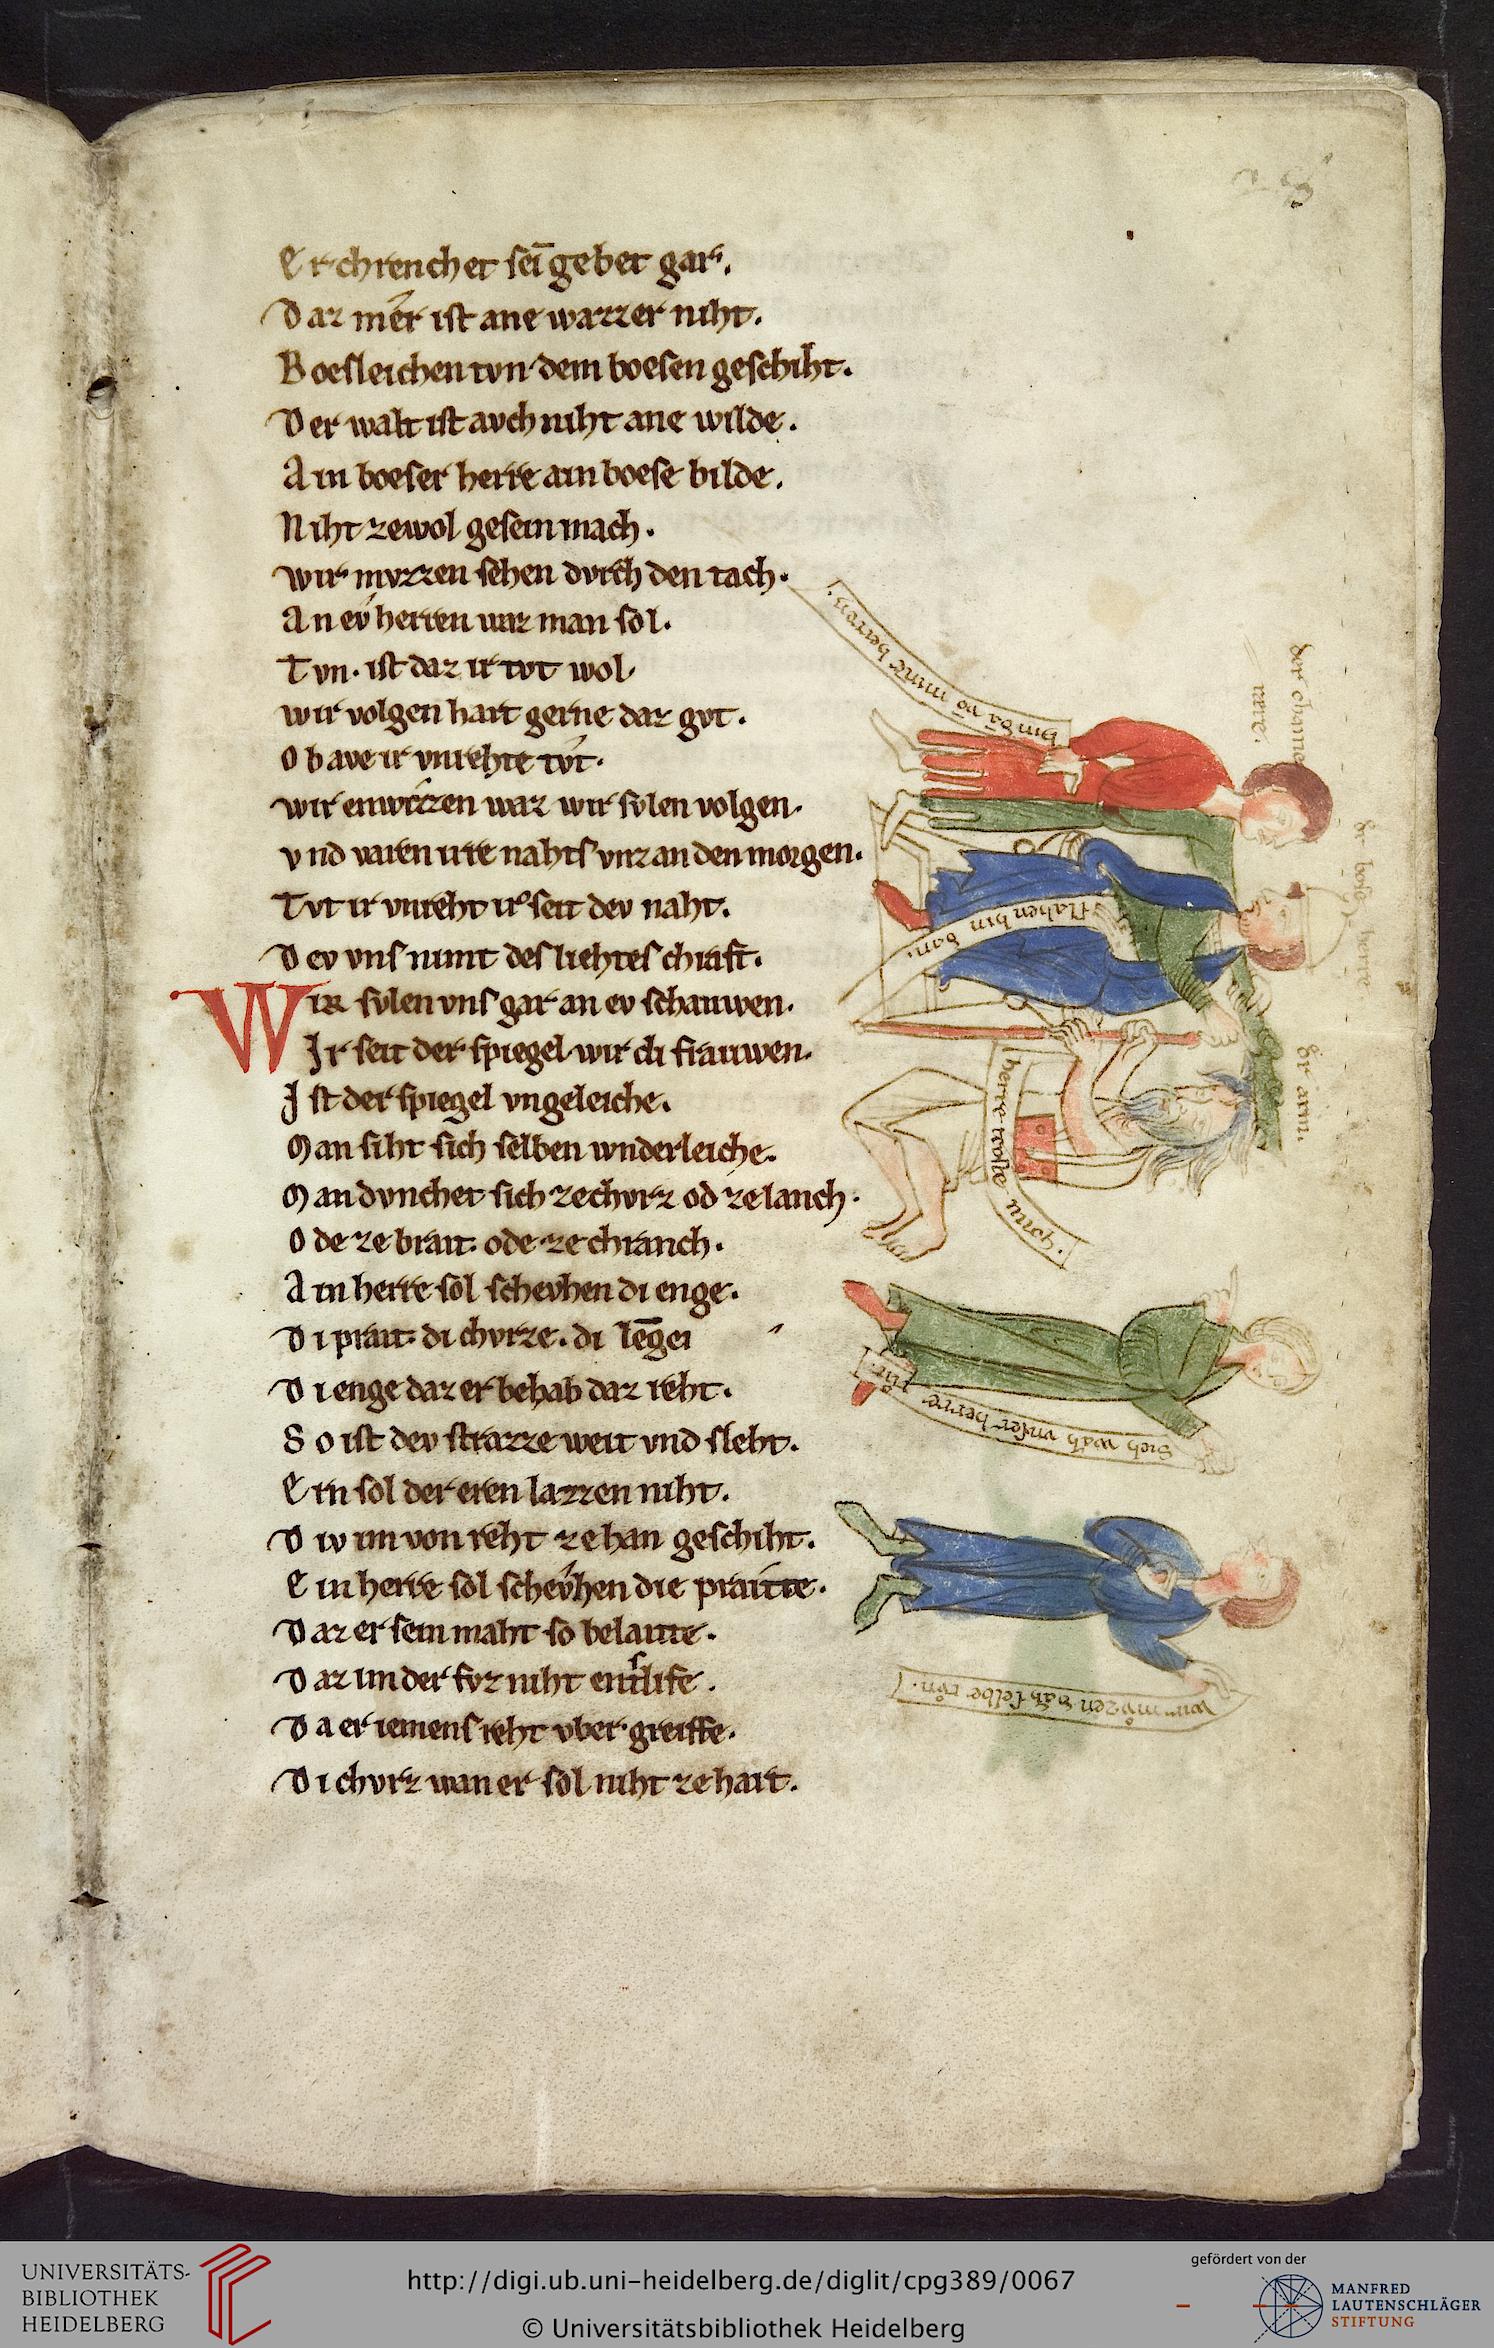 Er chrenchet seī gebet gar.
Daz mer ist ane wazzer niht.
Boesleichen tvn dem boesen geschiht.
Der walt ist avch niht ane wilde.
Ain boeser herre ain boese bilde.
Niht zewol gesein mach.
Wir mvzzen sehen dvrch den tach.
An ev herren waz man sol.
Tvn. ist daz ir tvt wol
wir volgen hart gerne daz gvt.
Ob ave ir vnrehte tvt.
wir enwizzen waz wir svlen volgen.
vnd varen irre nahts vnz an den morgen.
Tvt ir vnreht ir seit dev naht.
Dev vns nimt des liehtes chraft.
Wir svlen vns gar an ev schauwen.
Ir seit der spiegel wir di frauwen.
Ist der spiegel vngeleiche.
Man siht sich selben wnderleiche.
Man dvnchet sich zechvrz od zelanch.
Ode ze brait. ode ze chranch.
Ain herre sol schevhen di enge.
Di prait. di chvrze. di lēgei
Di enge daz er behab daz reht.
So ist dev strazze weit vnd sleht.
Ern sol der eren lazzen niht.
Div im von reht ze han geschiht.
Ein herre sol schevhen die praitte.
Daz er sein maht so belaitte.
Daz im der fvz niht entslife.
Da er iemens reht vber greiffe.
Di chvrz wan er sol niht ze hart.
bind vō mine herren.
der chamerere.
der bose herre
slahen bin dan.
der arm.
herre troste mich.
Sich wah vnser herre tvt.
wir mvzen dah selbe tvn.
UNIVERSITÄTS-
BIBLIOTHEK
HEIDELBERG
http://digi.ub.uni-heidelberg.de/diglit/cpg389/0067
© Universitätsbibliothek Heidelberg
gefördert von der
MANFRED
LAUTENSCHLÄGER
STIFTUNG